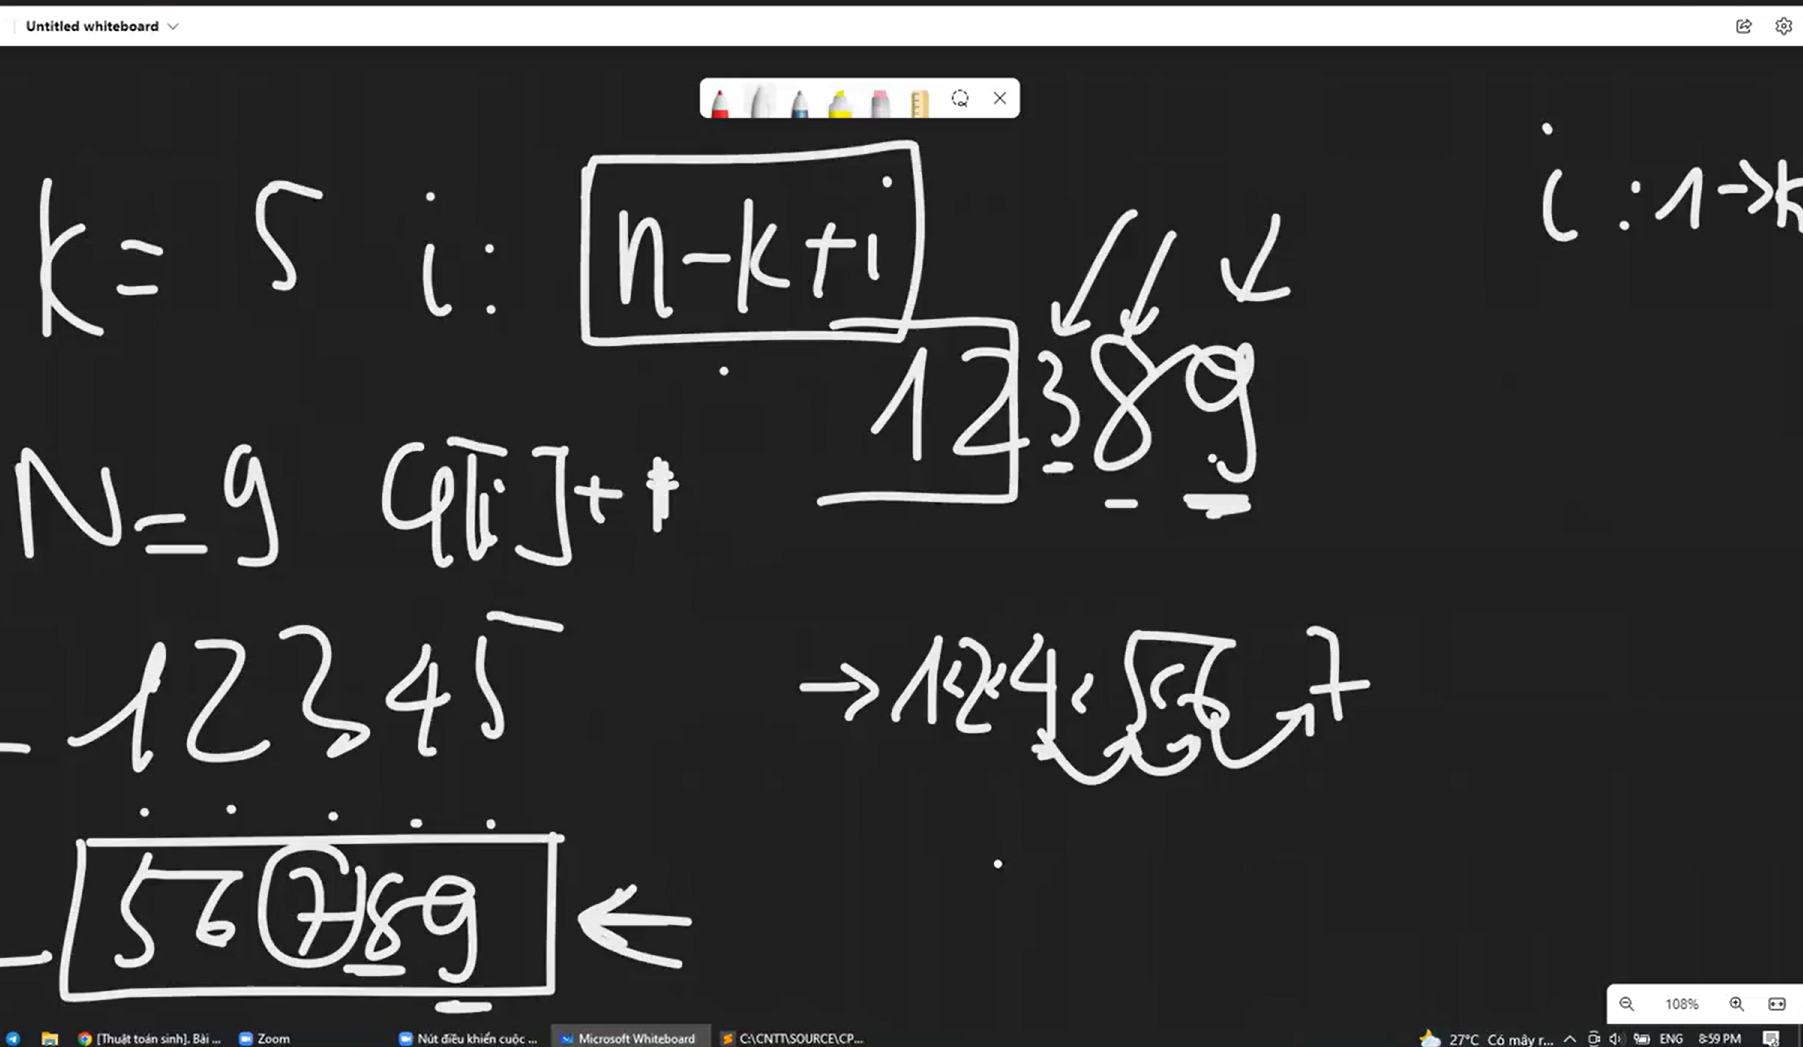 Untitled whiteboard
k = 5 i: n-k+i
i : 1 → k
1 2 3 8 9
N = 9 a[i] + 1
1 2 3 4 5
→ 1 < 2 < 4 < 5 < 6 7
5 6 7 8 9 ←
108%
[Thuật toán sinh]. Bài ... Zoom Nút điều khiển cuộc ... Microsoft Whiteboard C:\CNTT\SOURCE\CP... 27°C Có mây r... ENG 8:59 PM